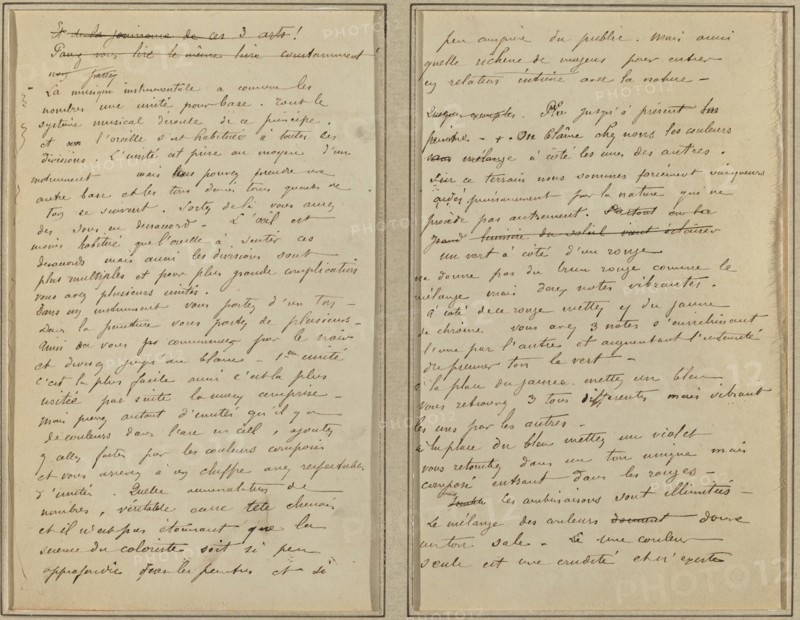 Et de la jouissance de ces 3 arts!
vous lire le même livre constamment!
vous partez
La musique instrumentale a comme les
nombres une unité pour base. Tout le
système musical découle de ce principe.
et l'oreille s'est habituée à toutes ces
divisions. L'unité est prise au moyen d'un
instrument mais vous pouvez prendre une
autre base et les tons demi tons quarts de
ton se suivent. Sortez de là vous avez
des sons en désaccord - L'œil est
moins habitué que l'oreille à sentir ces
désaccords mais aussi les divisions sont
plus multiples et pour plus grande complication
vous avez plusieurs unités.
Dans un instrument vous partez d'un ton -
Dans la peinture vous partez de plusieurs -
Ainsi vous commencez par le noir
et divisez jusqu'au blanc - 1ère unité
C'est la plus facile aussi c'est la plus
usitée par suite la mieux comprise -
Mais prenez autant d'unités qu'il y a
de couleurs dans l'arc en ciel, ajoutez
y celles faites par les couleurs composées
et vous arrivez à un chiffre assez respectable
d'unités. Quelle accumulation de
nombres, véritable casse tête chinois
et il n'est pas étonnant que la
science du coloriste soit si peu
approfondie par les peintres et si
peu comprise du public. Mais aussi
quelle richesse de moyens pour entrer
en relation intime avec la nature -
jusqu'à présent
peintres - On blâme chez nous les couleurs
sans mélange à côté les unes des autres.
Sur ce terrain nous sommes forcément vainqueurs
aidés puissamment par la nature qui ne
procède pas autrement. Partout où la
grande lumière du soleil vient éclairer
un vert à côté d'un rouge
ne donne pas du brun rouge comme le
mélange mais deux notes vibrantes.
à côté de ce rouge mettez y du jaune
de chrome vous avez 3 notes s'enrichissant
l'une par l'autre et augmentant l'intensité
du premier ton le vert -
à la place du jaune mettez un bleu
vous retrouvez 3 tons différents mais vibrant
les uns par les autres -
à la place du bleu mettez un violet
vous retombez dans un ton unique mais
composé entrant dans les rouges -
Les combinaisons sont illimitées -
Le mélange des couleurs donnant donne
un ton sale - Une couleur
seule est une crudité et n'existe